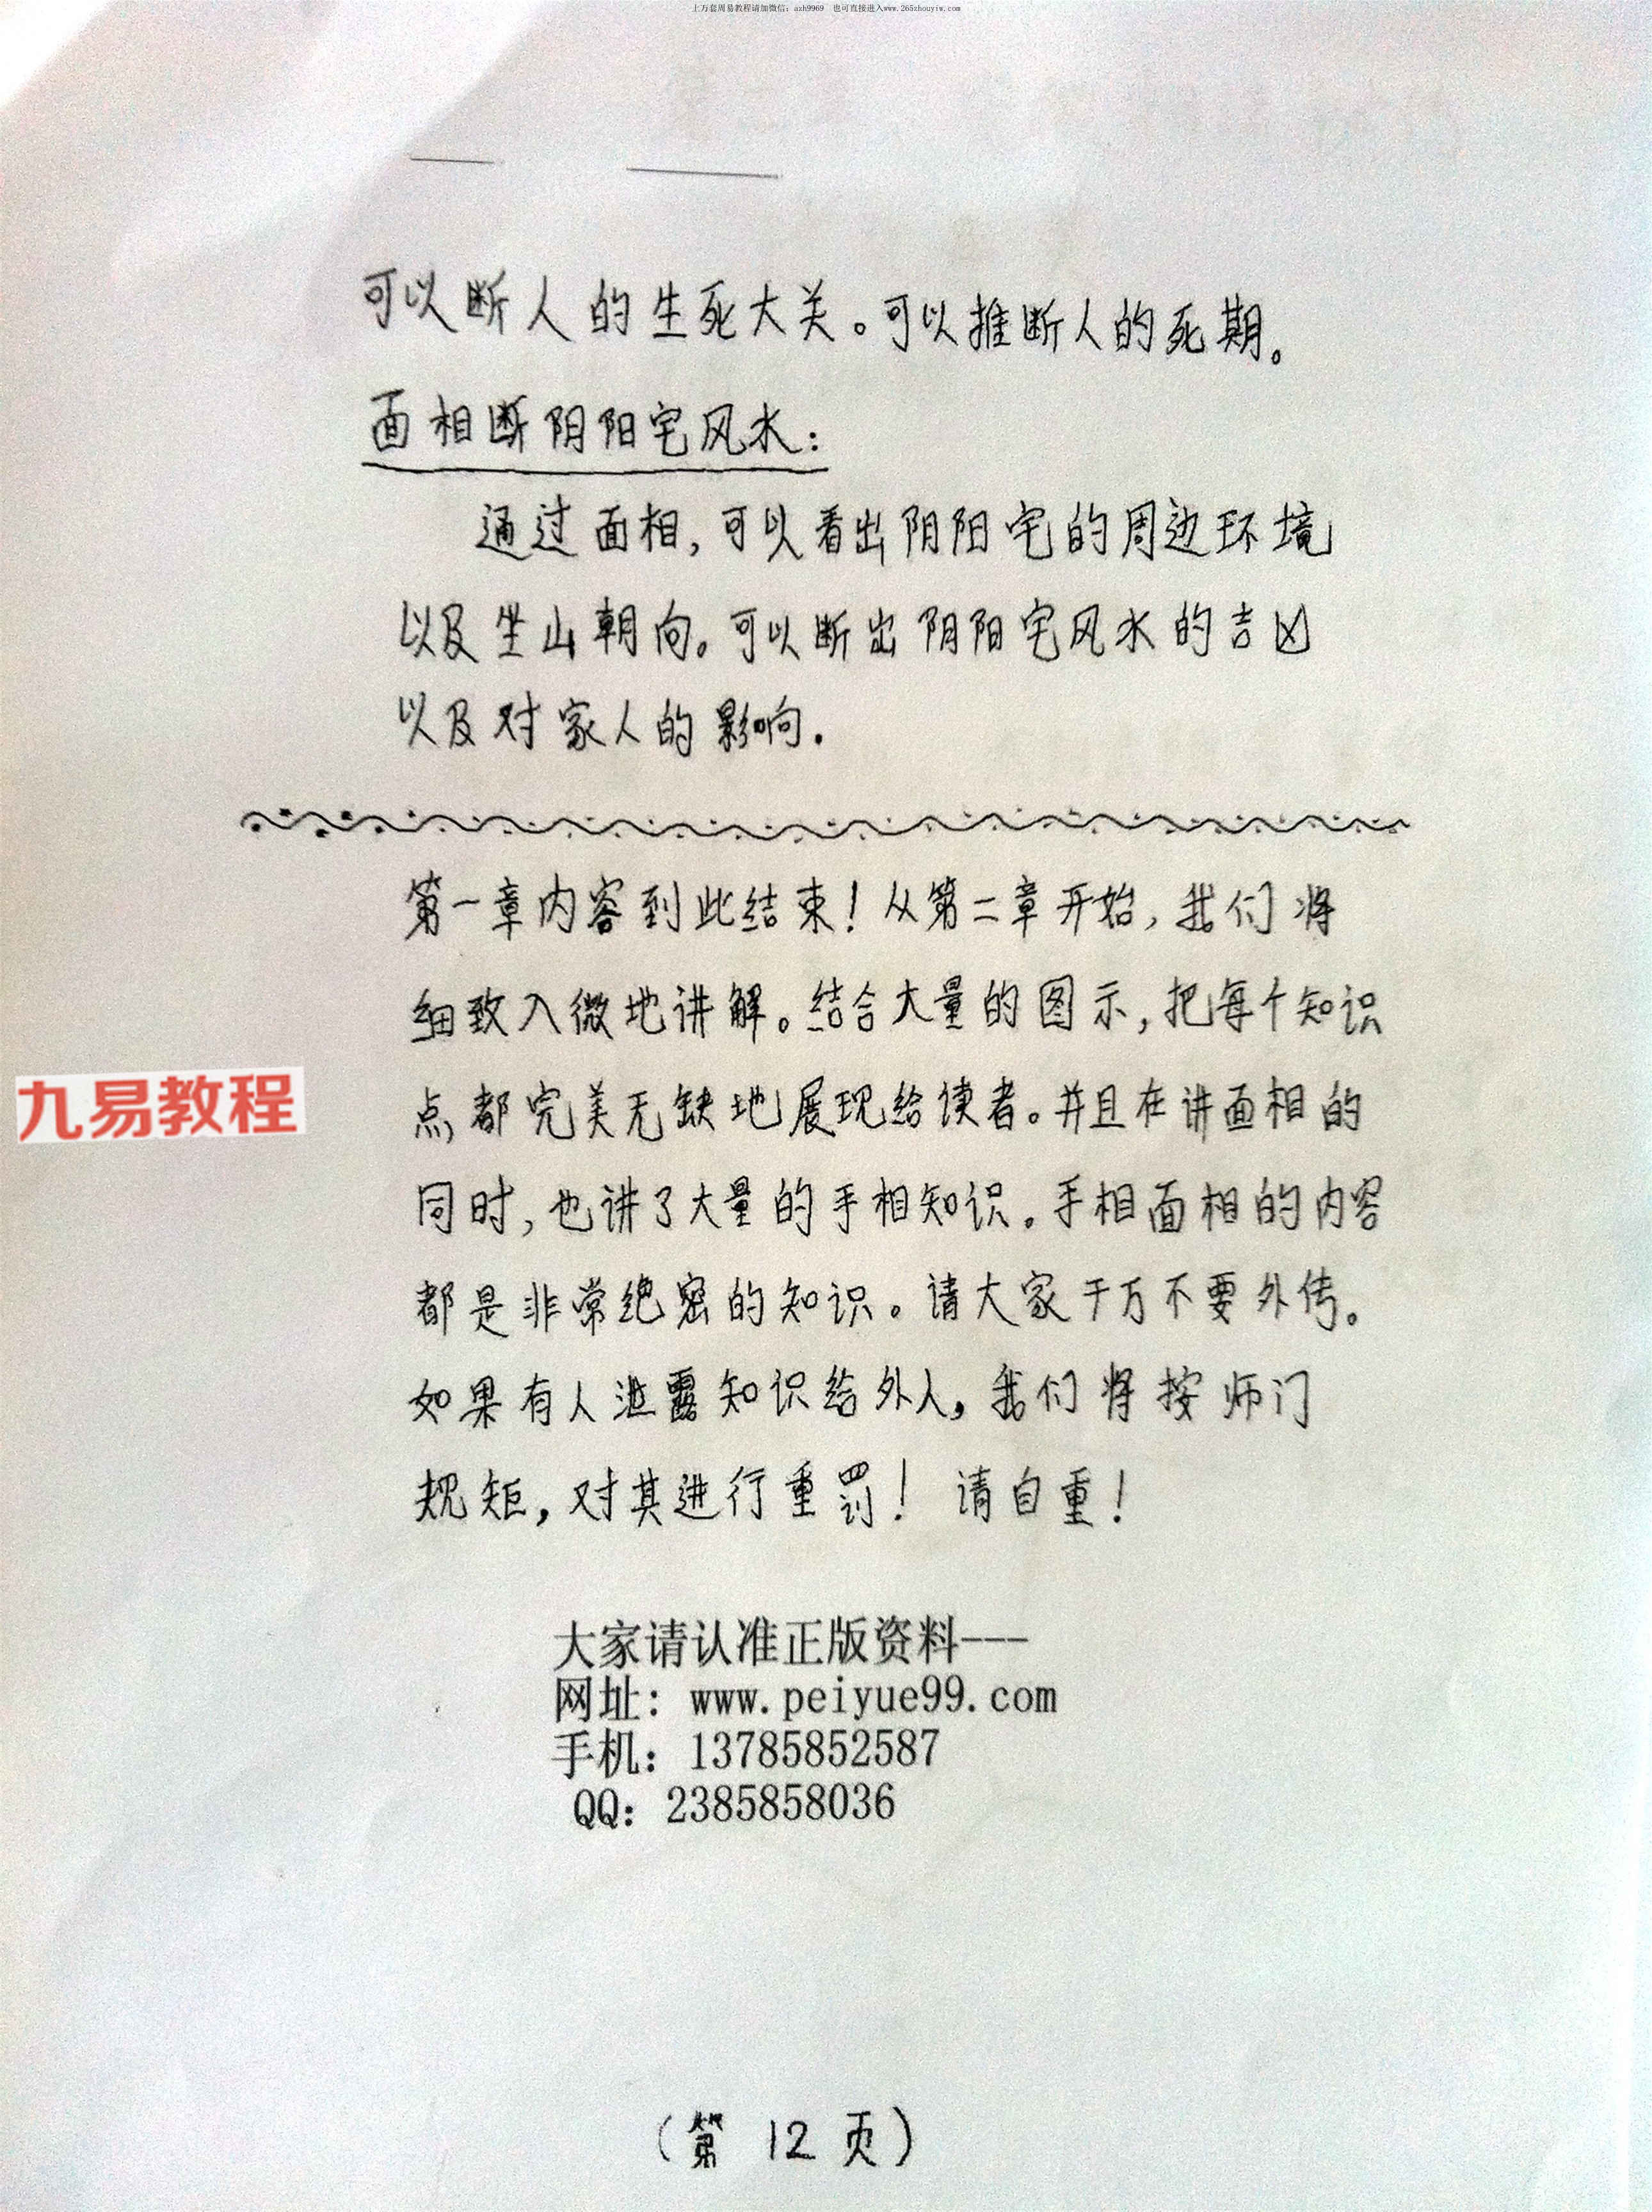 上万套周易教程请加微信：azh9969 也可直接进入www.265zhouyiw.com
可以断人的生死大关。可以推断人的死期。
面相断阴阳宅风水：
通过面相，可以看出阴阳宅的周边环境
以及坐山朝向。可以断出阴阳宅风水的吉凶
以及对家人的影响.
第一章内容到此结束！从第二章开始，我们将
细致入微地讲解。结合大量的图示，把每个知识
九易教程
点都完美无缺地展现给读者。并且在讲面相的
同时，也讲了大量的手相知识。手相面相的内容
都是非常绝密的知识。请大家千万不要外传。
如果有人泄露知识给外人，我们将按师门
规矩，对其进行重罚！请自重！
大家请认准正版资料---
网址：www.peiyue99.com
手机：13785852587
QQ：2385858036
（第12页）